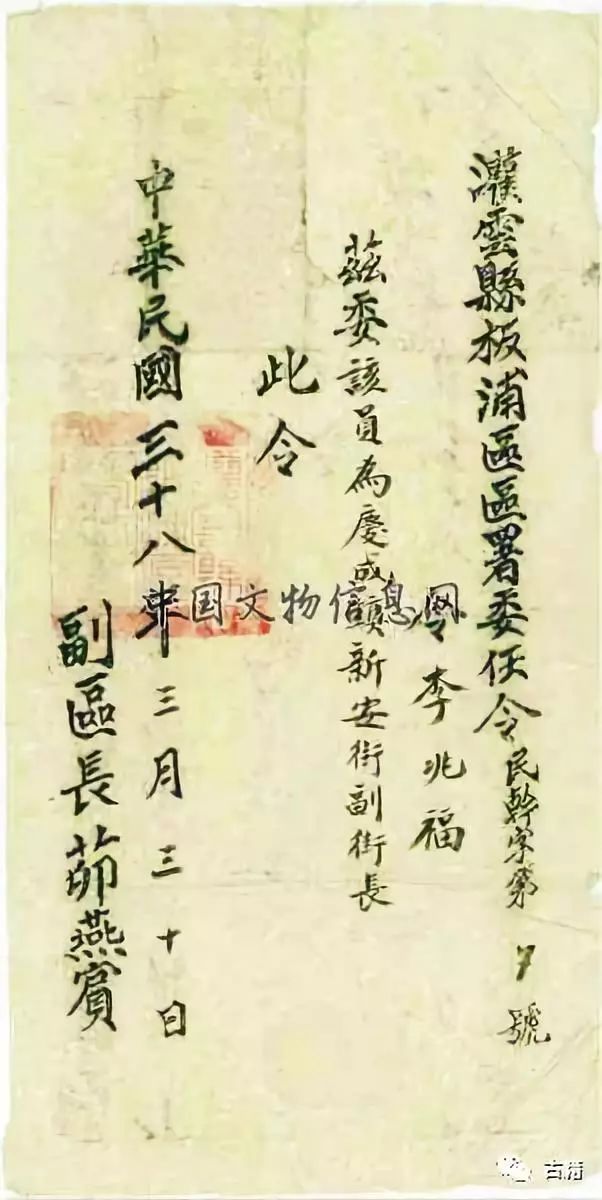 灌雲縣板浦區區署委任令民幹字第7號
令李兆福
茲委該員為慶成鎮新安街副街長
此令
中華民國三十八年三月三十日
副區長茆燕賓
国文物信息网